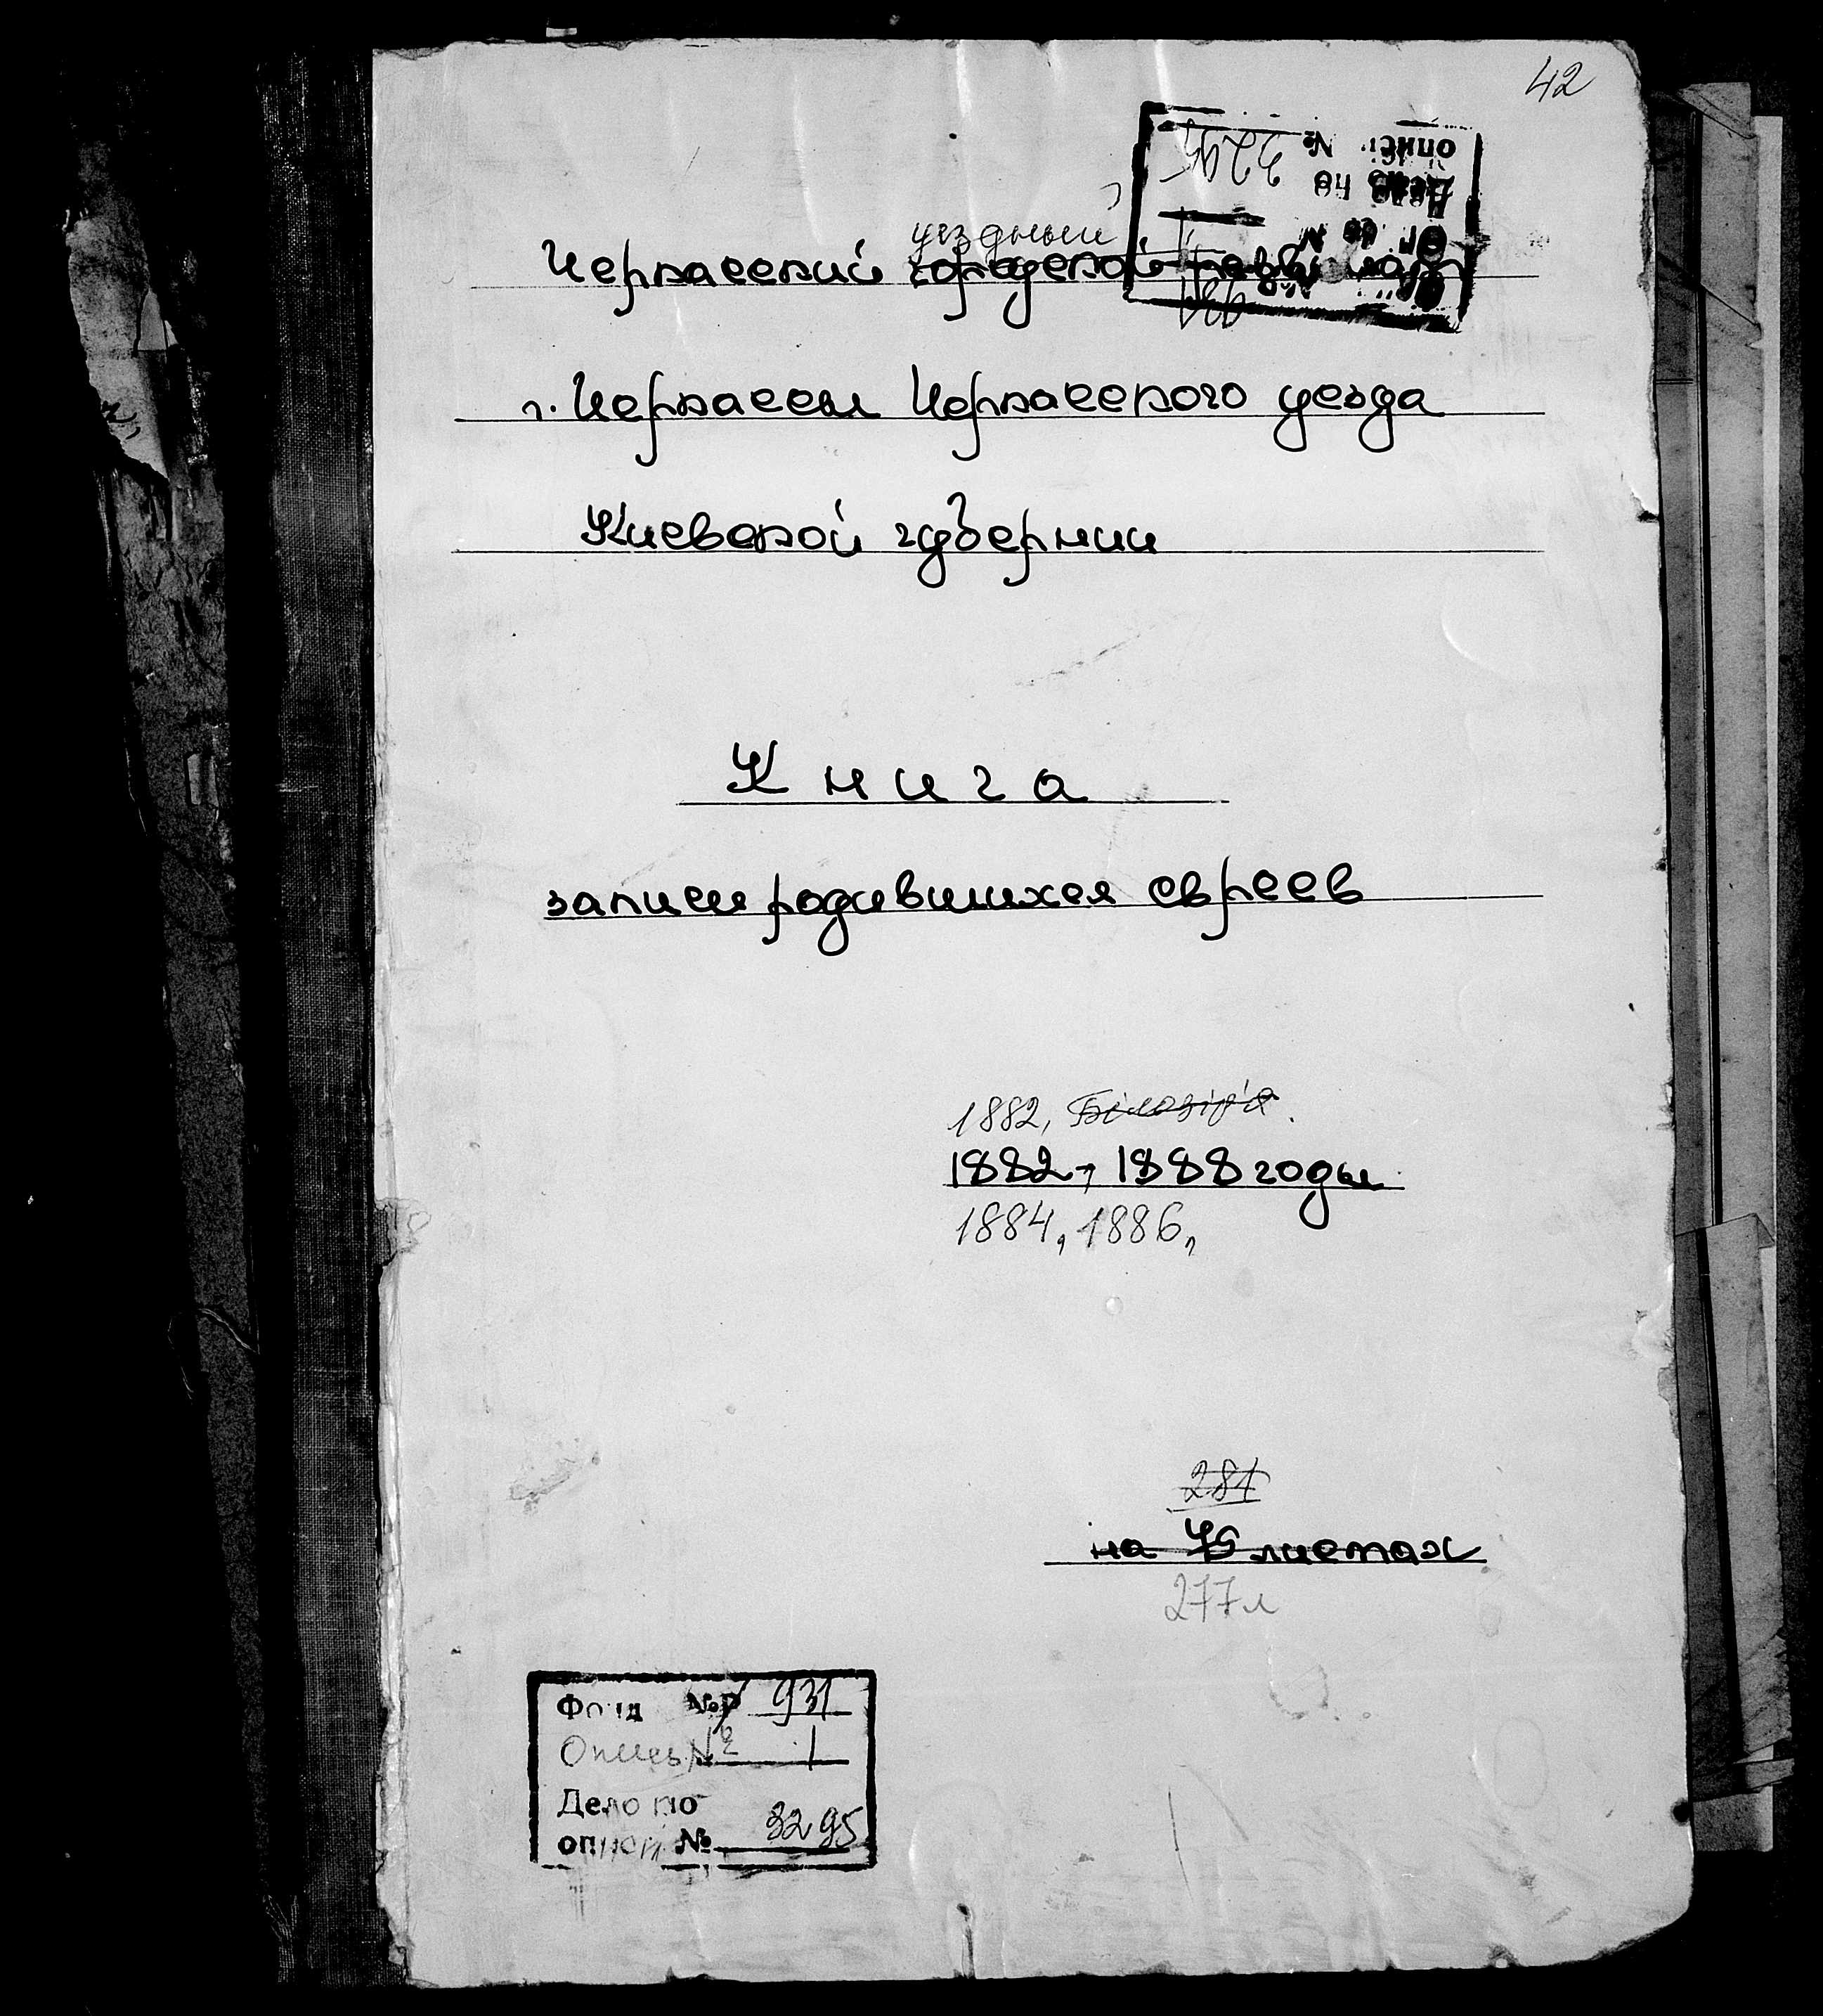 42
описи № 3295
Дело по
уездный
Черкасский городской раввинат
г. Черкассы Черкасского уезда
Киевской губернии
Книга
записи родившихся евреев
1882, Білозір'я.
1882, 1888 годы
1884, 1886,
281
на листах
277л
Фонд № 931
Опись № 1
Дело по
описи № 3295